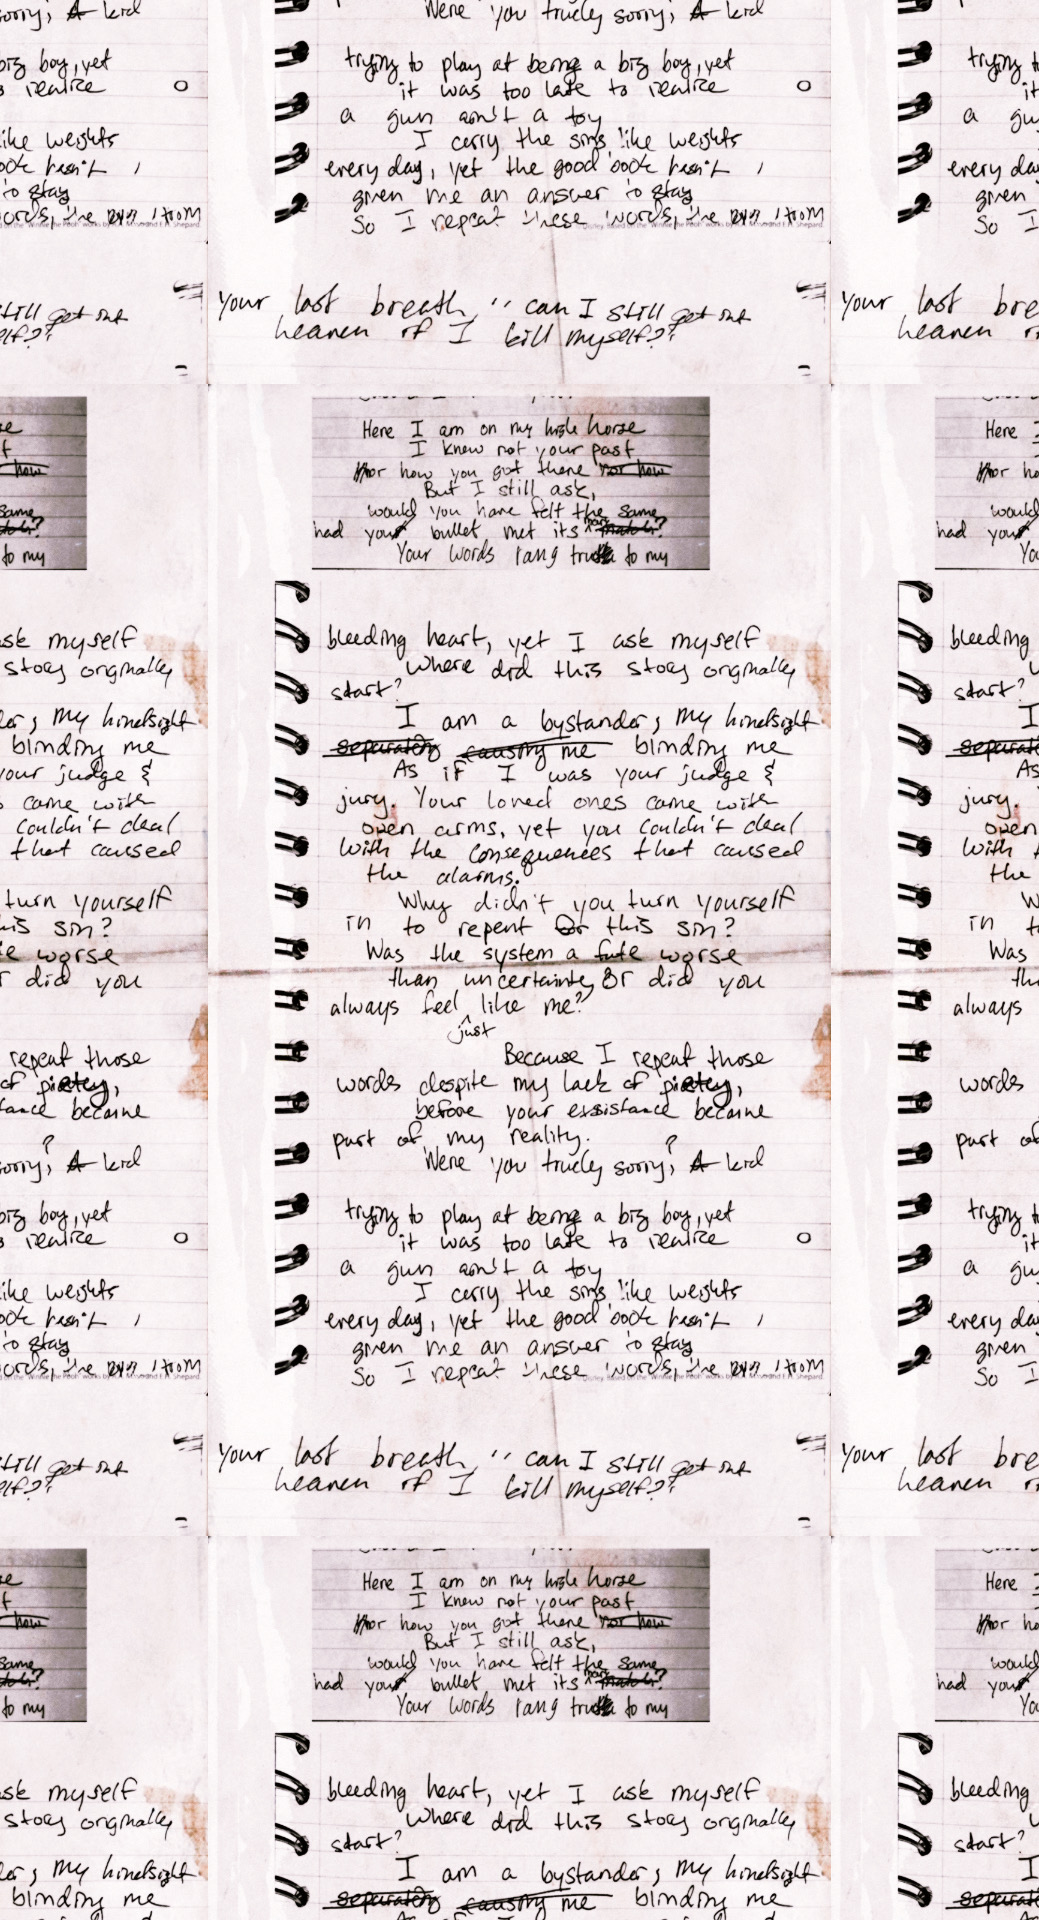 Were you truely sorry, A kid
trying to play at being a big boy, yet
it was too late to realize
a gun ain't a toy
I carry the sins like weights
every day, yet the good book hasn't
given me an answer to stay
So I repeat these words, the from
Your last breath, "can I still get out
heaven if I kill myself??
Here I am on my high horse
I knew not your past
Nor how you got there nor how
But I still ask,
would you have felt the same
had your bullet met its
Your words rang to my
bleeding heart, yet I ask myself
Where did this story orginally
start?
I am a bystander, my hindsight
separating causing me blinding me
As if I was your judge &
jury. Your loved ones came with
open arms, yet you couldn't deal
with the consequences that caused
the alarms.
Why didn't you turn yourself
in to repent for this sin?
Was the system a fate worse
than uncertainty Or did you
always feel like me?
just
Because I repeat those
words despite my lack of piety,
before your exsistance became
part of my reality.
Were you truely sorry, A kid
trying to play at being a big boy, yet
it was too late to realize
a gun ain't a toy
I carry the sins like weights
every day, yet the good book hasn't
given me an answer to stay
So I repeat these words, the from
Your last breath, "can I still get out
heaven if I kill myself??
Here I am on my high horse
I knew not your past
Nor how you got there nor how
But I still ask,
would you have felt the same
had your bullet met its
Your words rang to my
bleeding heart, yet I ask myself
Where did this story orginally
start?
I am a bystander, my hindsight
separating causing me blinding me